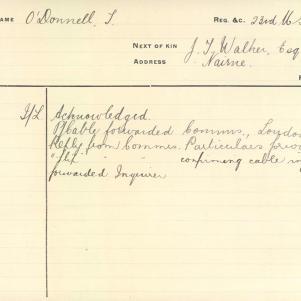 NAME O'Donnell, T. REG. &C. 23rd
NEXT OF KIN J. T. Walker, Esq
ADDRESS Nairne.
Acknowledged.
forwarded Comms., London
Reply from Commes. Particulars
" " " confirming cable
forwarded Inquirer